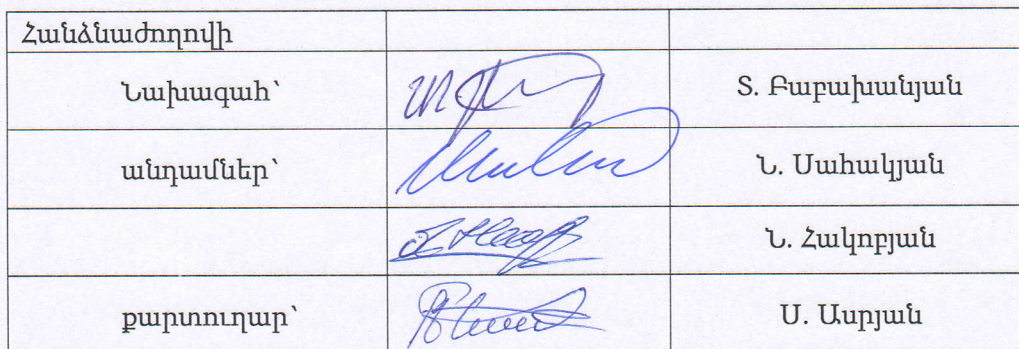 Հանձնաժողովի
Նախագահ՝ Տ. Բաբախանյան
անդամներ՝ Ն. Սահակյան
Ն. Հակոբյան
քարտուղար՝ Ս. Ասրյան